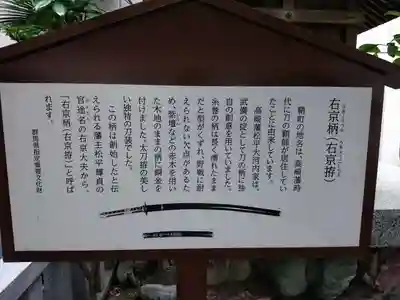 右京柄(右京拵)
鞘町の地名は、高崎藩時
代に刀の鞘師が居住してい
たことに由来しています。
高崎藩松平大河内家は、
武備の掟として刀の柄に独
自の創意を用いていました。
糸巻の柄は長く濡れたまま
だと型がくずれ、野戦に耐
えられない欠点があるた
め、紫壇などの唐木を用い
た木地のままの柄に鋼金を
付けました。太刀拵の美し
い独特の刀装でした。
この柄は創始したと伝
えられる藩主松平輝貞の
官途名の右京大夫から、
「右京柄(右京拵)」と呼ば
れます。
群馬県指定重要文化財